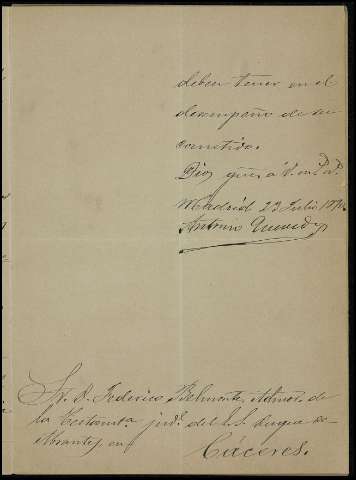 deben tener en el
desempeño de su
cometido.
Dios gue. á V. m.s a.s
Madrid 23 Julio
Antonio
Sr. D. Federico Belmonte, Admor. de
la Testamta. jud. del E. S. Duque de
Abrantes, en
Cáceres.